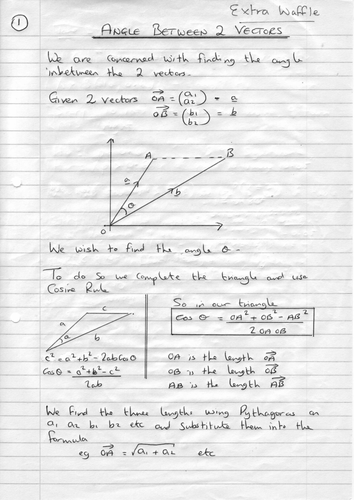 Extra Waffle
①
ANGLE BETWEEN 2 VECTORS
We are concerned with finding the angle
inbetween the 2 vectors.
Given 2 vectors OA→ = (a1 a2) = a
OB→ = (b1 b2) = b
A B
a b
θ
O
We wish to find the angle θ -
To do so we complete the triangle and use
Cosine Rule
c
a
θ b
c² = a² + b² - 2ab Cos θ
Cos θ = a² + b² - c² / 2ab
So in our triangle
Cos θ = OA² + OB² - AB² / 2 OA OB
OA is the length OA→
OB is the length OB→
AB is the length AB→
We find the three lengths using Pythagoras on
a1 a2 b1 b2 etc and substitute them into the
formula
eg OA→ = √a1 + a2 etc